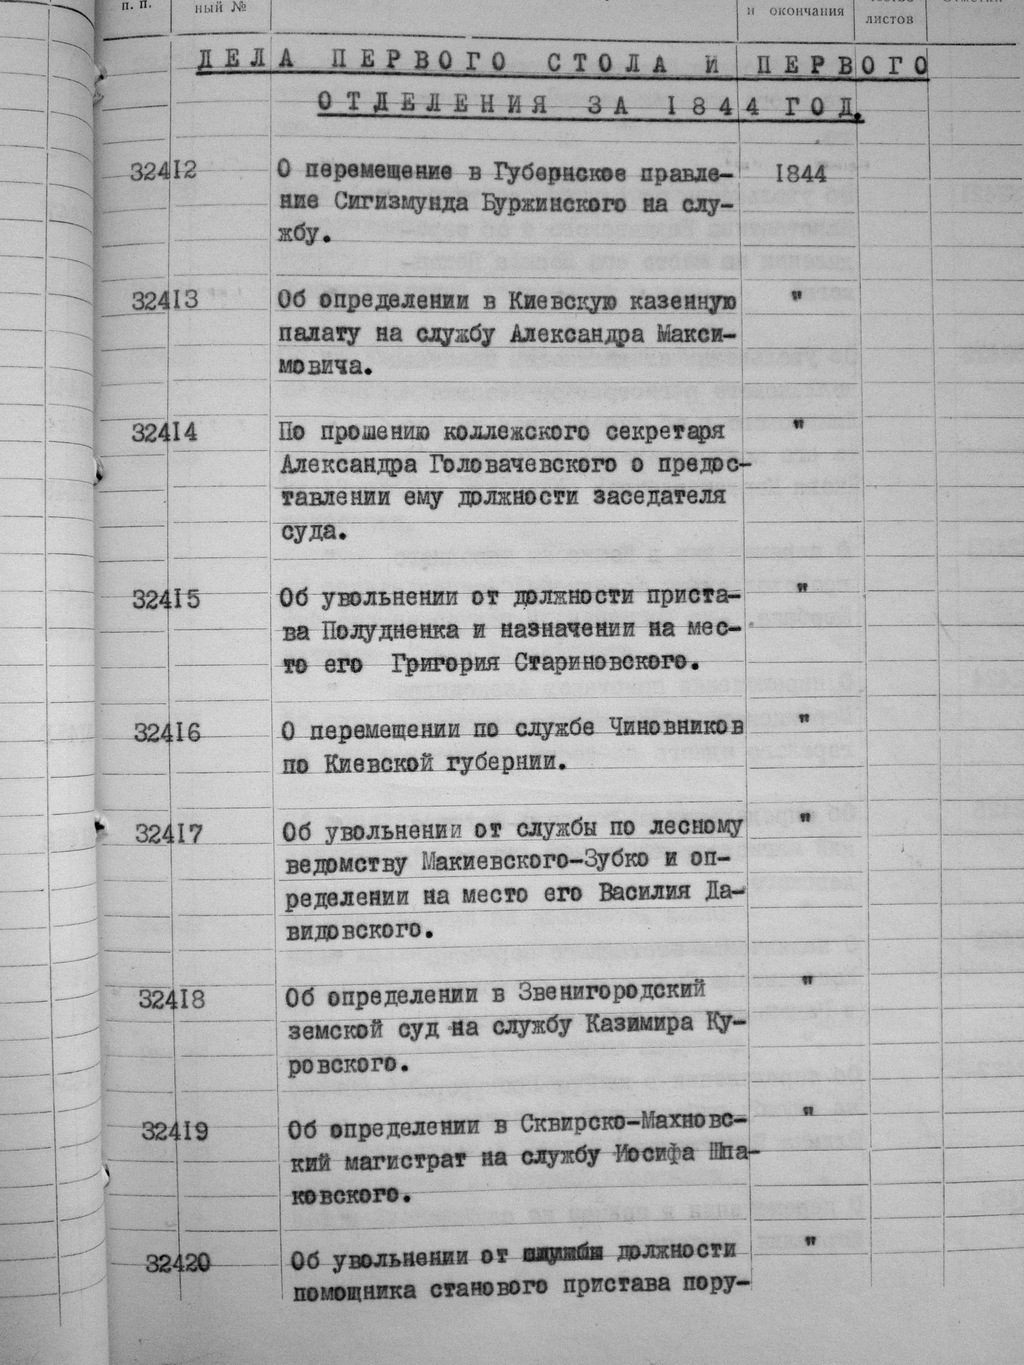 п. п.
ный №
и окончания
листов
ДЕЛА ПЕРВОГО СТОЛА И ПЕРВОГО
ОТДЕЛЕНИЯ ЗА 1844 ГОД.
32412 О перемещение в Губернское правле- 1844
ние Сигизмунда Буржинского на слу-
жбу.
32413 Об определении в Киевскую казенную "
палату на службу Александра Макси-
мовича.
32414 По прошению коллежского секретаря "
Александра Головачевского о предос-
тавлении ему должности заседателя
суда.
32415 Об увольнении от должности приста- "
ва Полудненка и назначении на мес-
то его Григория Стариновского.
32416 О перемещении по службе Чиновников "
по Киевской губернии.
32417 Об увольнении от службы по лесному "
ведомству Макиевского-Зубко и оп-
ределении на место его Василия Да-
видовского.
32418 Об определении в Звенигородский "
земской суд на службу Казимира Ку-
ровского.
32419 Об определении в Сквирско-Махновс- "
кий магистрат на службу Иосифа Шпа-
ковского.
32420 Об увольнении от службы должности "
помощника станового пристава пору-